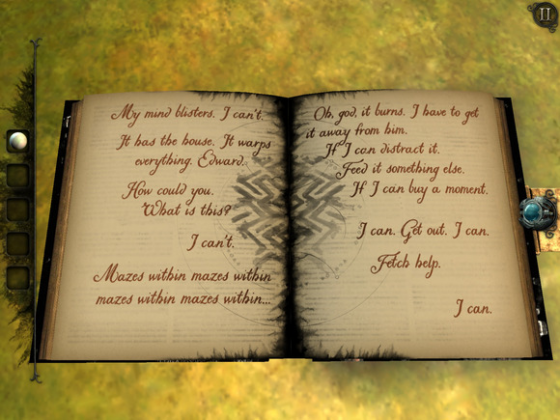 My mind blisters. I can't.
It has the house. It warps
everything. Edward.
How could you.
What is this?
I can't.
Mazes within mazes within
mazes within mazes within...
Oh, god, it burns. I have to get
it away from him.
If I can distract it.
Feed it something else.
If I can buy a moment.
I can. Get out. I can.
Fetch help.
I can.